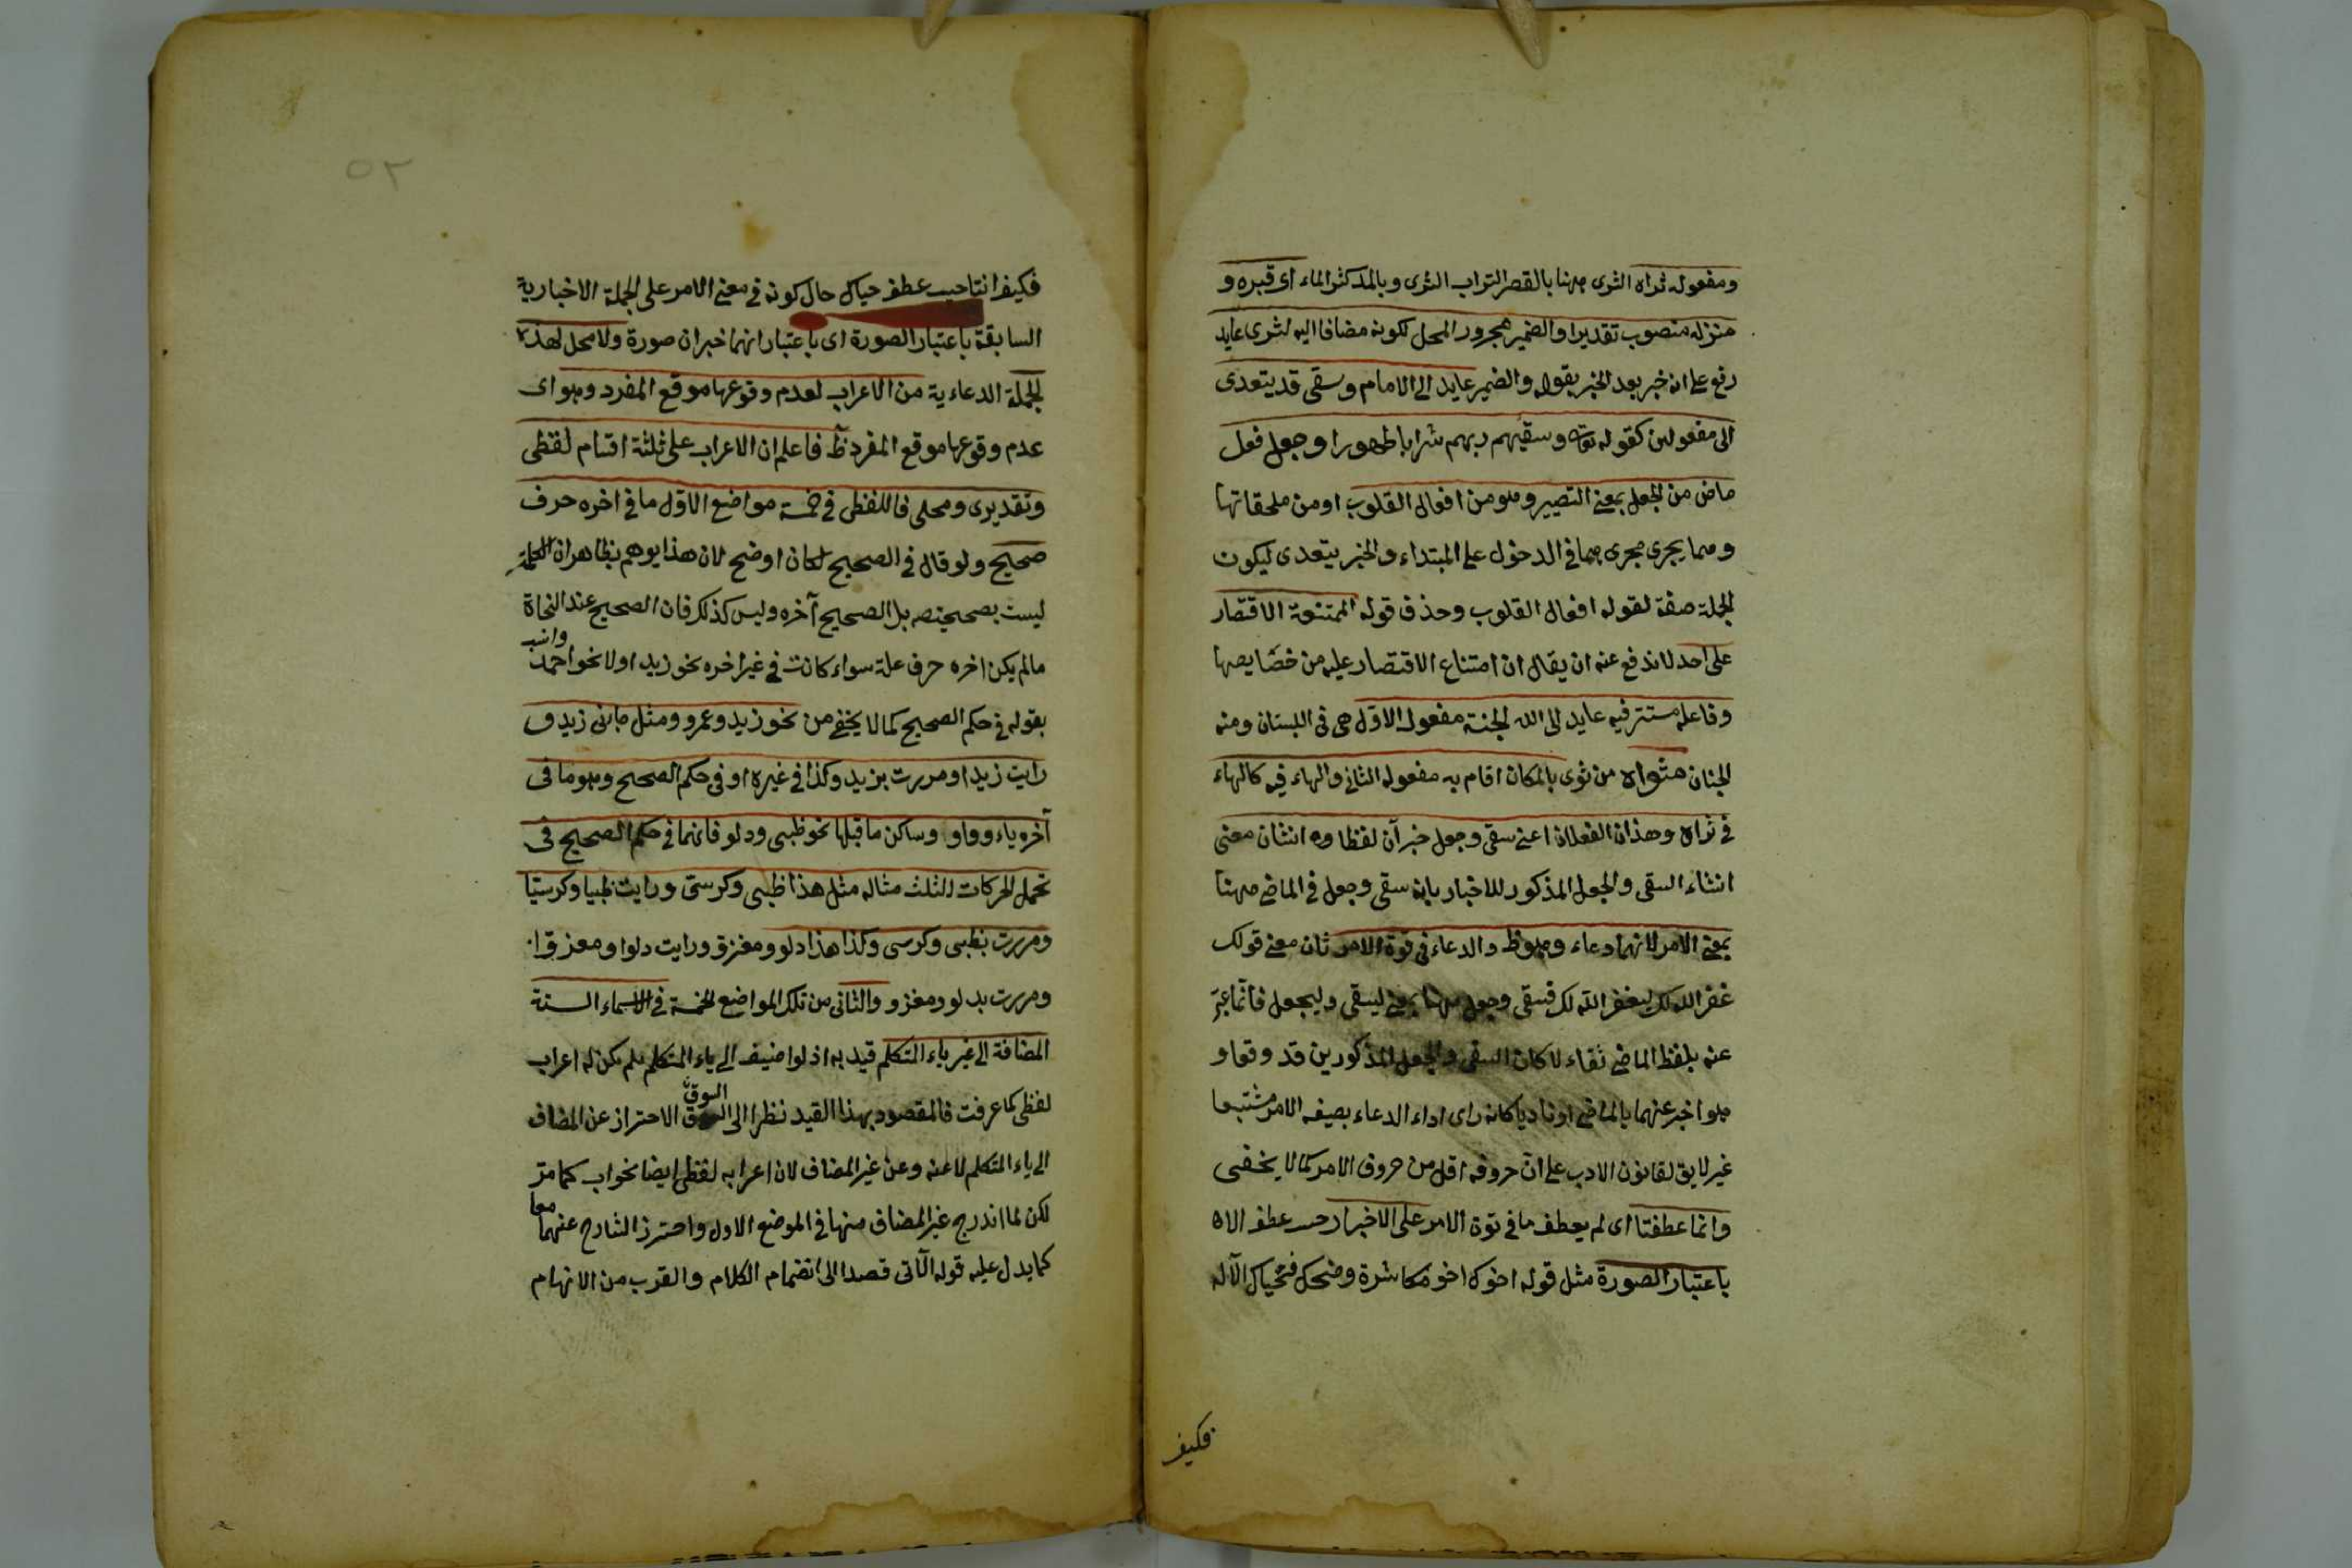 ومفعوله ثراه الثرى ههنا بالقصر التراب الثرى وبالمد كثر الماء اى قبره و
منزله منصوب تقديرا والضمير مجرور المحل لكونه مضافا اليه لثرى عايد
رفع على انه خبر بعد الخبر بقوله والضمير عايد الى الامام وسقى قد يتعدى
الى مفعولين كقوله تعالى وسقيهم ربهم شرابا طهورا وجعل فعل
ماض من الجعل بمعنى التصيير وهو من افعال القلوب او من ملحقاتها
ومما يجرى مجرى مما فى الدخول على المبتداء والخبر يتعدى ليكون
الجملة صفة لقوله افعال القلوب وحذف قوله الممتنعة الاقتصار
على احد لاندفع عنه ان يقال ان امتناع الاقتصار عليه من خصايصها
وفاعله مستتر فيه عايد الى الله الجنة مفعول الاول هى فى البستان ومنه
الجنان مثواه من ثوى بالمكان اقام به مفعوله الثانى والهاء فيه كالهاء
فى ثراه وهذان الفعلان اعنى سقى وجعل خبرآن لفظا وه انشان معنى
انشاء السقى والجعل المذكور للاخبار بانه سقى وجعل فى الماضى ههنا
بمعنى الامر لانهما دعاء وهو ظ والدعاء فى قوة الامر ثان معنى قولك
غفر الله لك ليغفر الله لك فسقى وجعل ههنا بمعنى ليسقى وليجعل فانما عبّر
عنه بلفظ الماضى تفاء لا كان السقى والجعل المذكورين قد وقعا و
هو اخبر عنهما بالماضى او تادبا كانه راى اداء الدعاء بصيغه الامر مشتبها
غير لايق لقانون الادب على انّ حروفه اقل من حروف الامر كما لا يخفى
وانما عطفتا اى لم يعطف ما فى قوة الامر على الاخبار حسب عطف الاه
باعتبار الصورة مثل قوله اخوك اخو مكاشرة وضحك فحياك الآله
فكيف
فكيف انتاحيب عطف حياك حال كونه فى معنى الامر على الجملة الاخبارية
السابقة باعتبار الصورة اى باعتبار انهما خبران صورة ولا محل لهذه
الجملة الدعاءية من الاعراب لعدم وقوعها موقع المفرد وهو اى
عدم وقوعها موقع المفرد ظ فاعلم ان الاعراب على ثلثة اقسام لفظى
وتقديرى ومحلى فاللفظى فى خمسة مواضع الاول ما فى اخره حرف
صحيح ولو قال فى الصحيح لكان اوضح لان هذا يوهم بظاهر ان الكلمة
ليست بصحيحة بل الصحيح آخره وليس كذلك فان الصحيح عند النحاة
مالم يكن اخره حرف علة سواء كانت فى غير اخره نحو زيد او لا نحو احمد
بقوله فى حكم الصحيح كما لا يخفى من نحو زيد وعمرو ومثل جاءنى زيد و
رايت زيدا ومررت بزيد وكذا فى غيره او فى حكم الصحيح وهو ما فى
آخره ياء وواو وساكن ما قبلها نحو ظبى ودلو فانهما فى حكم الصحيح فى
تحمل الحركات الثلث مثاله مثل هذا ظبى وكرسىّ ورايت ظبيا وكرسيّا
ومررت بظبى وكرسى وكذا هذا دلو ومغزوّ ورايت دلوا ومغزوّا
ومررت بدلو ومغزو والثانى من تلك المواضع الخمسة فى الاسماء الستة
المضافة الى غير ياء المتكلم قيد به اذ لو اضيف الى ياء المتكلم لم يكن له اعراب
لفظى كما عرفت فالمقصود بهذا القيد نظرا الى السوق الاحتراز عن المضاف
الى ياء المتكلم لا عنه وعن غير المضاف لان اعرابه لفظى ايضا نحو اب كما مرّ
لكن لما اندرج غير المضاف منها فى الموضع الاول واحترز الشارح عنهما معا
كما يدل عليه قوله الآتى قصدا الى انضمام الكلام والقرب من الانهام